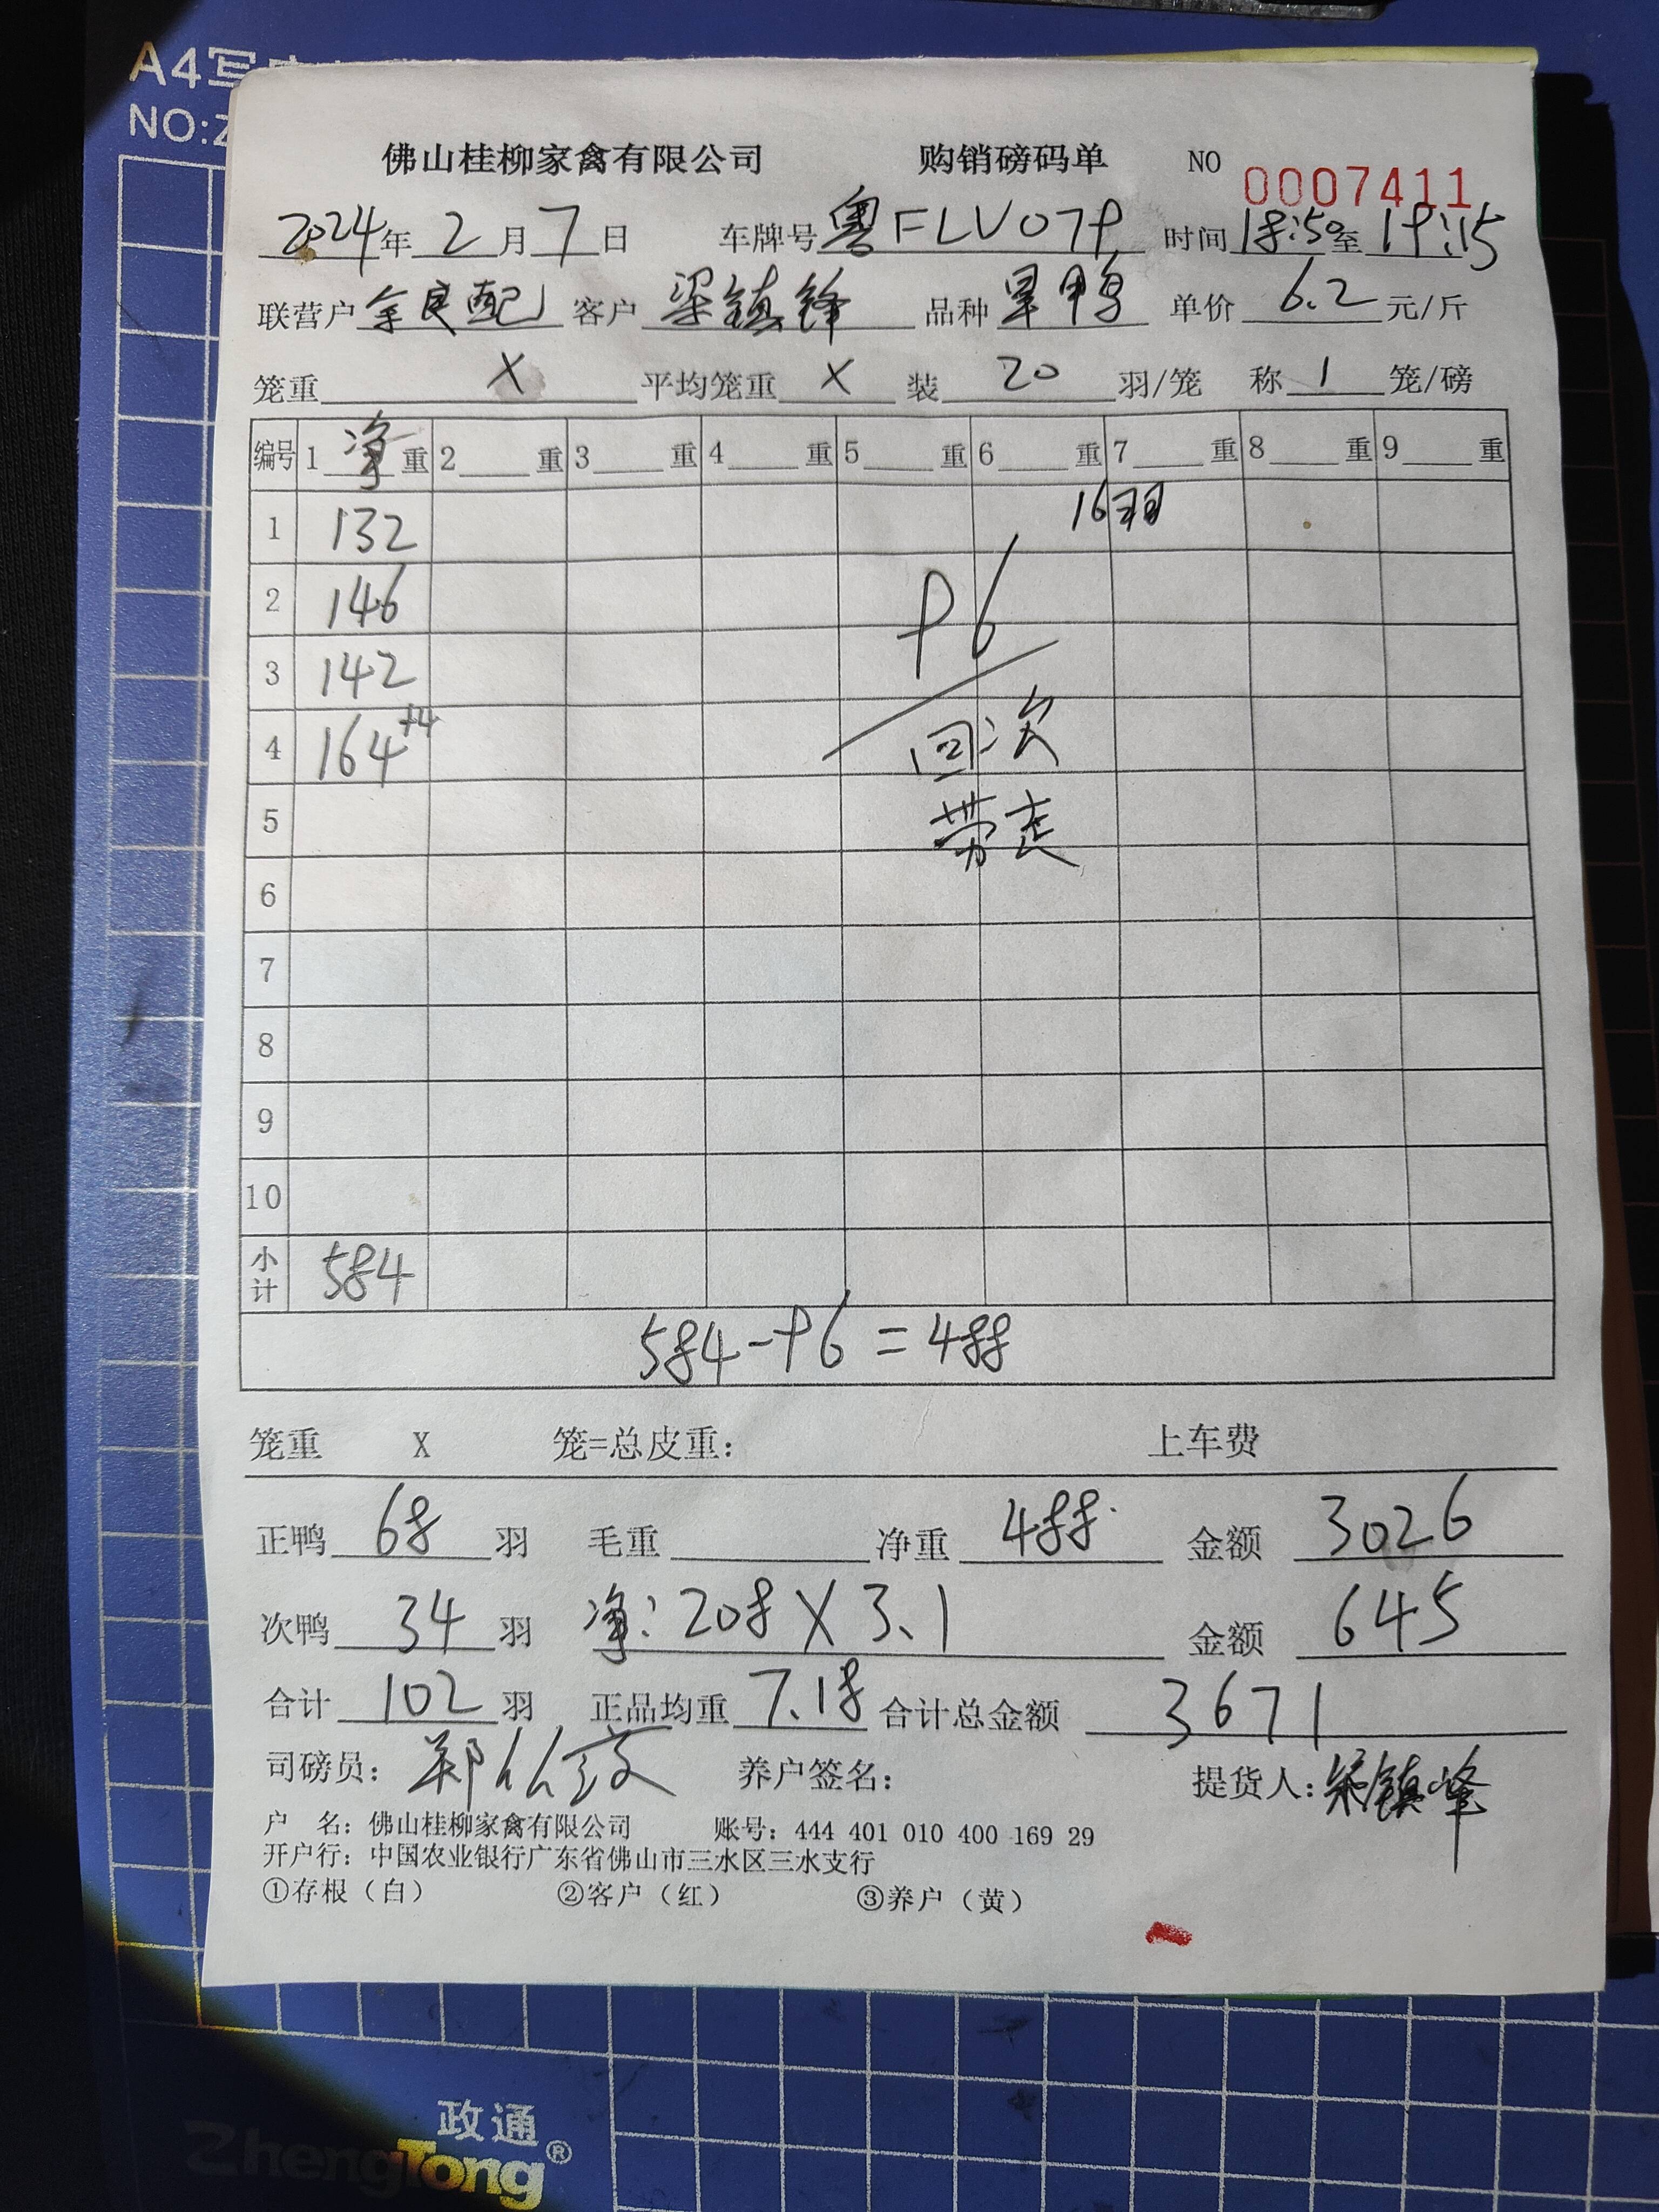 A4写
NO:Z
佛山桂柳家禽有限公司 购销磅码单 NO 0007411
2024年2月7日 车牌号粤FLV079 时间18:50至19:15
联营户余良配 客户梁镇锋 品种旱鸭 单价6.2元/斤
笼重X 平均笼重X 装20羽/笼 称1笼/磅
编号 1净重 2重 3重 4重 5重 6重 7重 8重 9重
1 132 16羽
2 146 96
3 142
4 164+4 回次
5 带走
6
7
8
9
10
小计 584
584-96=488
笼重 X 笼=总皮重： 上车费
正鸭68羽 毛重 净重488 金额3026
次鸭34羽 净:208X3.1 金额645
合计102羽 正品均重7.18 合计总金额3671
司磅员：郑 养户签名： 提货人：梁镇峰
户 名：佛山桂柳家禽有限公司 账号：444 401 010 400 169 29
开户行：中国农业银行广东省佛山市三水区三水支行
①存根（白） ②客户（红） ③养户（黄）
政通
ZhengTong®